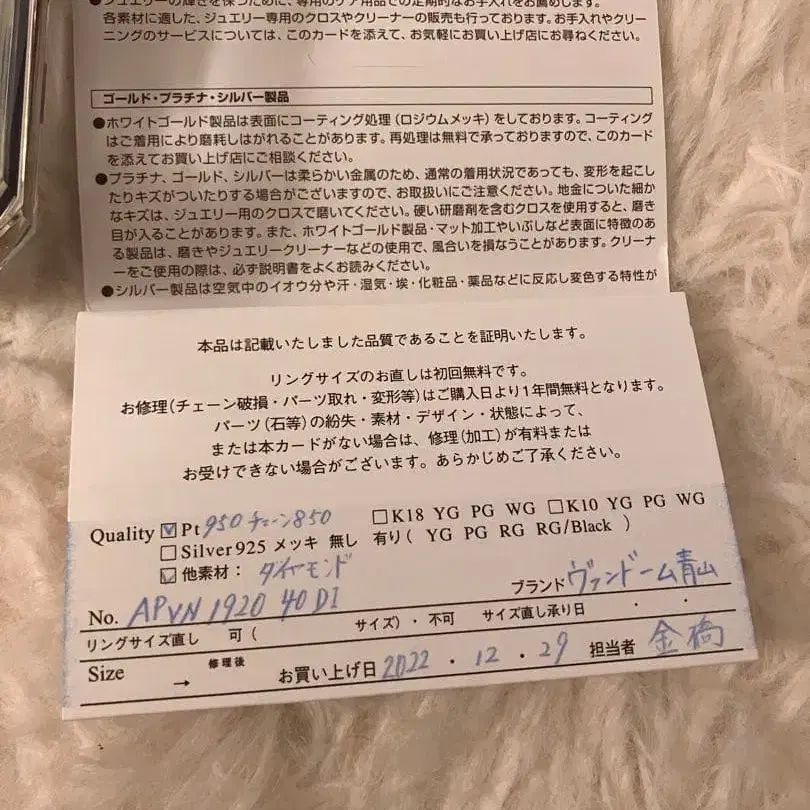 ●ジュエリーの輝きを保つために、専用のケア用品での定期的なお手入れをお薦めします。
各素材に適した、ジュエリー専用のクロスやクリーナーの販売も行っております。お手入れやクリー
ニングのサービスについては、このカードを添えて、お気軽にお買い上げ店にお尋ねください。
ゴールド・プラチナ・シルバー製品
●ホワイトゴールド製品は表面にコーティング処理(ロジウムメッキ)をしております。コーティング
はご着用により磨耗しはがれることがあります。再処理は無料で承っておりますので、このカード
を添えてお買い上げ店にご相談ください。
●プラチナ、ゴールド、シルバーは柔らかい金属のため、通常の着用状況であっても、変形を起こし
たりキズがついたりする場合がございますので、お取扱いにご注意ください。地金についた細か
なキズは、ジュエリー用のクロスで磨いてください。硬い研磨剤を含むクロスを使用すると、磨き
目が入ることがあります。また、ホワイトゴールド製品・マット加工やいぶしなど表面に特徴のあ
る製品は、磨きやジュエリークリーナーなどの使用で、風合いを損なうことがあります。クリーナ
ーをご使用の際は、必ず説明書をよくお読みください。
●シルバー製品は空気中のイオウ分や汗・湿気・埃・化粧品・薬品などに反応し変色する特性が
本品は記載いたしました品質であることを証明いたします。
リングサイズのお直しは初回無料です。
お修理(チェーン破損・パーツ取れ・変形等)はご購入日より1年間無料となります。
パーツ(石等)の紛失・素材・デザイン・状態によって、
または本カードがない場合は、修理(加工)が有料または
お受けできない場合がございます。あらかじめご了承ください。
Quality ☑Pt 950 チェーン850 □K18 YG PG WG □K10 YG PG WG
□Silver925 メッキ 無し 有り( YG PG RG RG/Black )
☑他素材: ダイヤモンド
No. APVN 1920 40 DI ブランド ヴァンドーム青山
リングサイズ直し 可( サイズ)・不可 サイズ直し承り日 ・ ・
Size → 修理後 お買い上げ日 2022 . 12 . 29 担当者 金橋